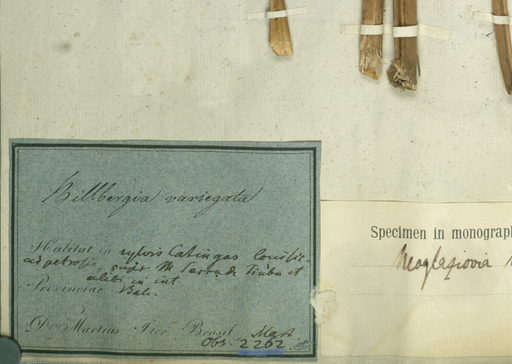 Billbergia variegata
Habitat in sylvis Catingas
ad petrosa, M. Serra de Tiuba et
alibi in int.
Provinciae Bah.
Dr. Martius Iter Brasil Mart
Obs. 2262
Specimen in monograp
Neoglaziovia